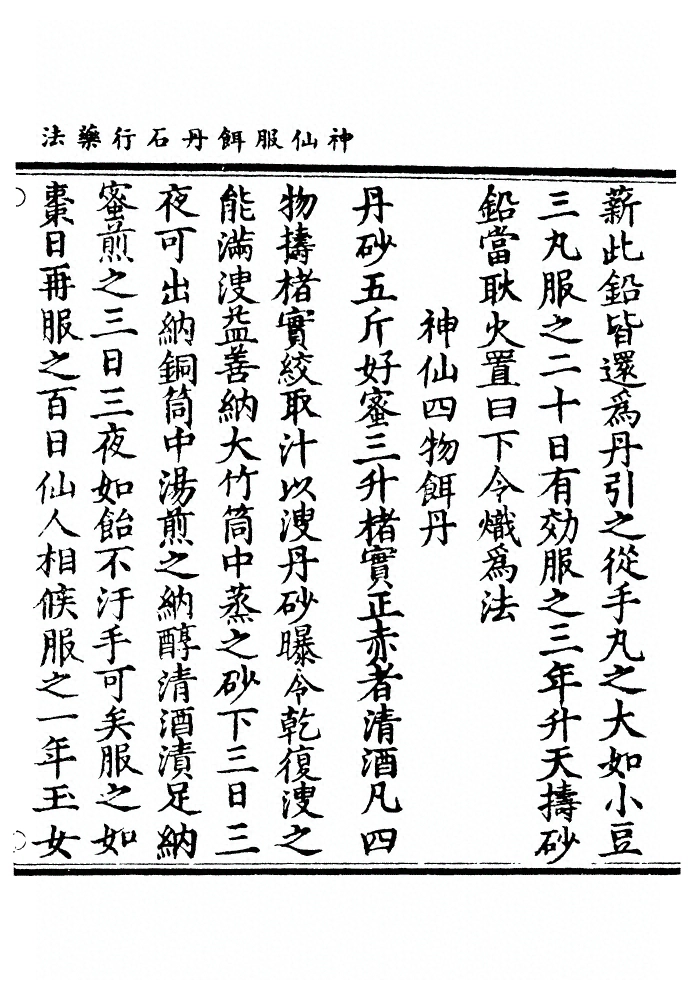 神仙服餌丹石行藥法
薪此鉛皆還爲丹引之從手丸之大如小豆
三丸服之二十日有効服之三年升天擣砂
鉛當耿火置曰下令熾爲法
神仙四物餌丹
丹砂五斤好蜜三升楮實正赤者清酒凡四
物擣楮實絞取汁以溲丹砂曝令乾復溲之
能滿溲益善納大竹筒中蒸之砂下三日三
夜可出納銅筒中湯煎之納醇清酒漬足納
蜜煎之三日三夜如飴不汙手可矣服之如
棗日再服之百日仙人相候服之一年玉女